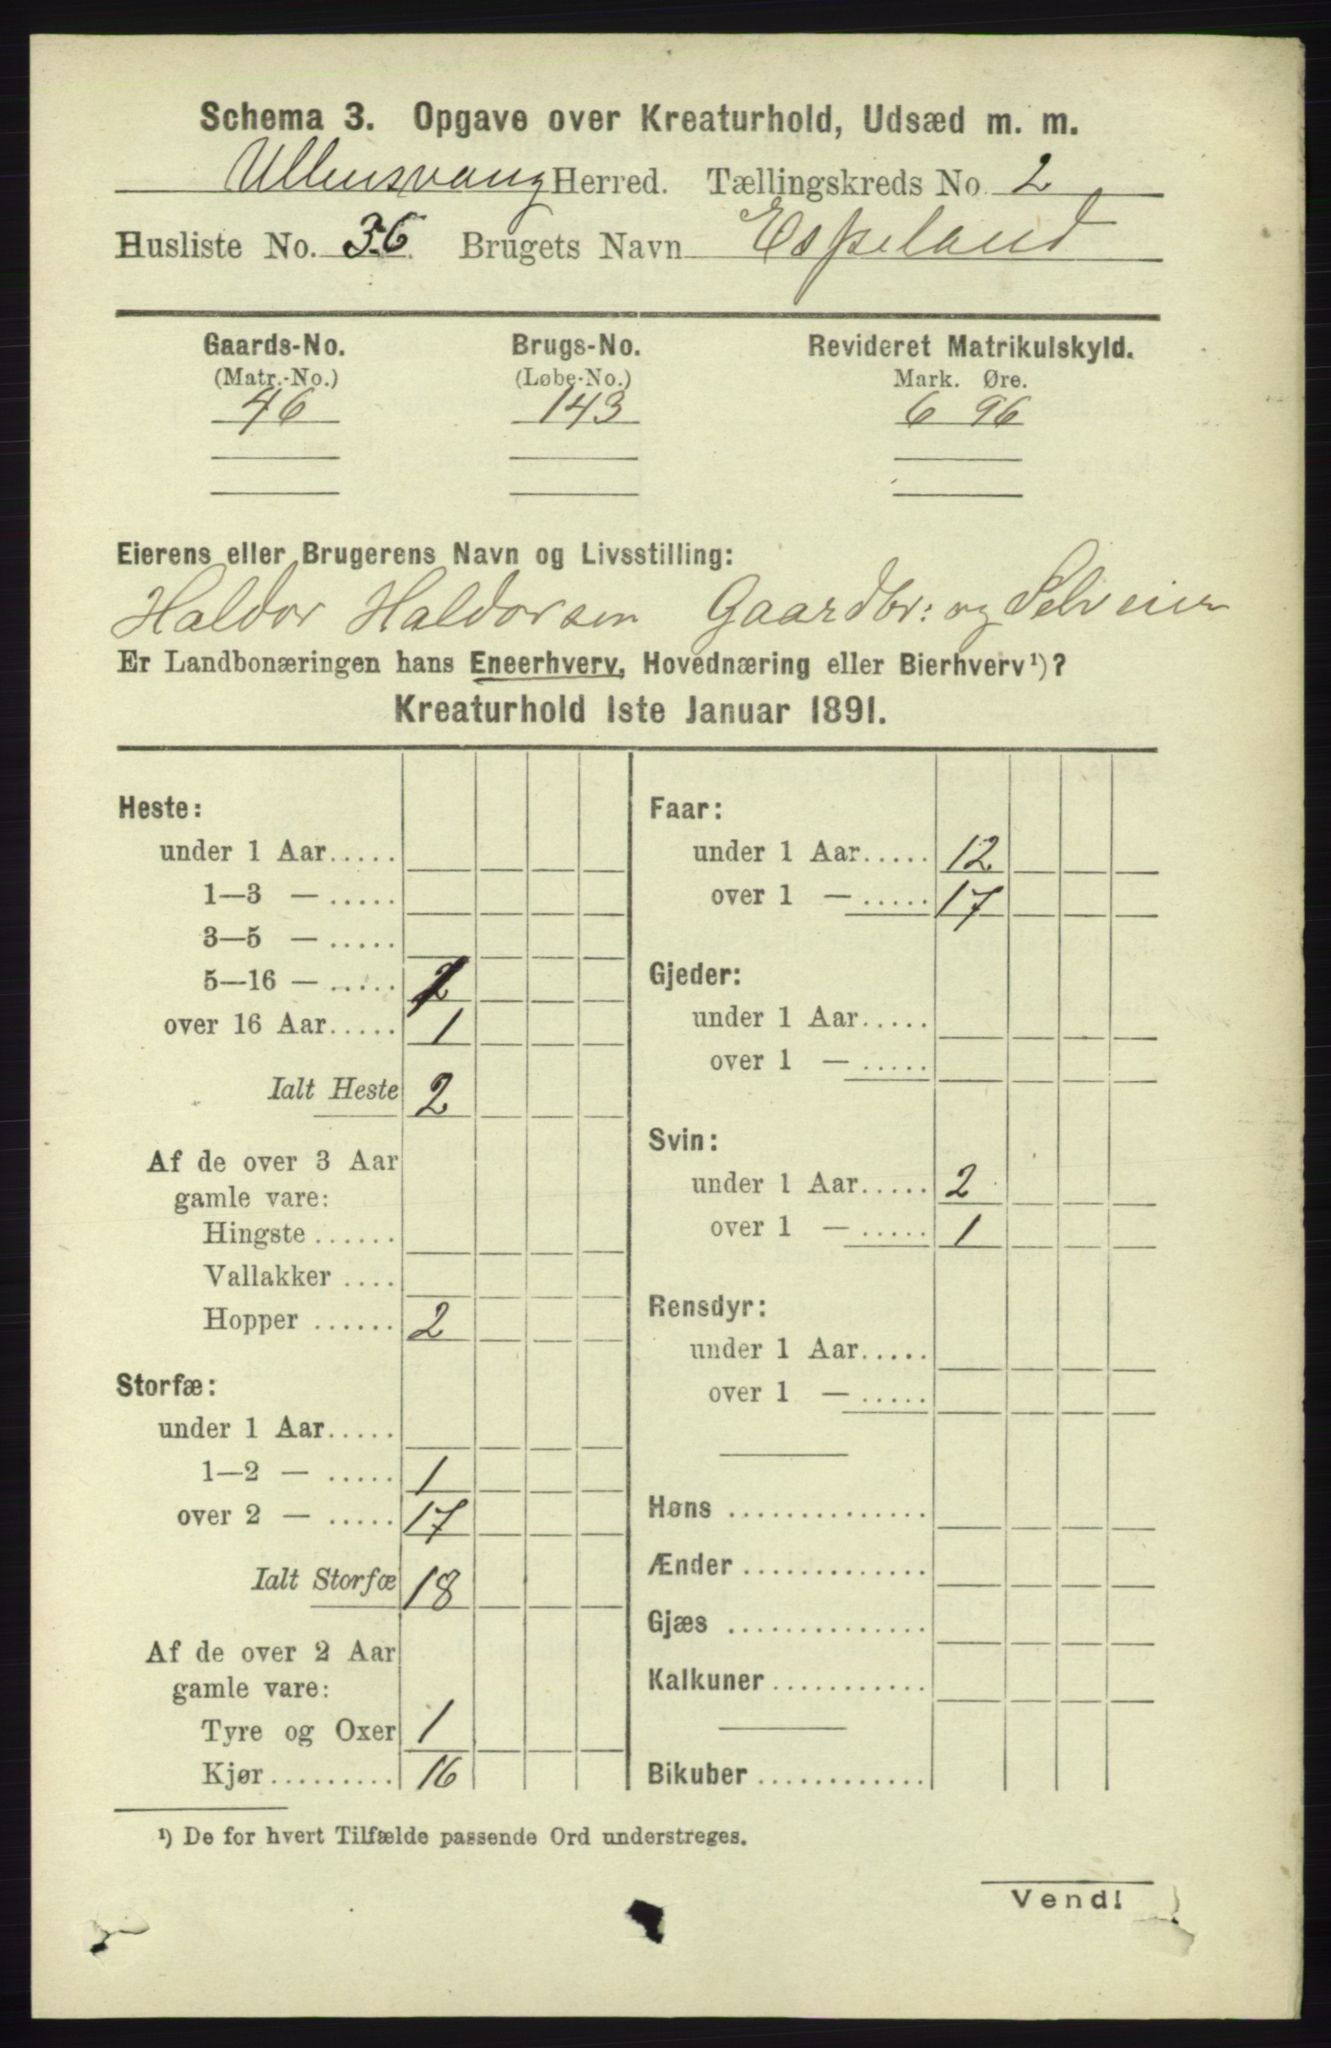 Schema 3. Opgave over Kreaturhold, Udsæd m. m.
Ullensvang Herred. Tællingskreds No. 2
Husliste No. 36 Brugets Navn Espeland
Gaards-No. Brugs-No. Revideret Matrikulskyld.
(Matr.-No.) (Løbe-No.) Mark. Øre.
46 143 6 96
Eierens eller Brugerens Navn og Livsstilling:
Haldor Haldorsen Gaardbr: og Selveier
Er Landbonæringen hans Eneerhverv, Hovednæring eller Bierhverv¹)?
Kreaturhold 1ste Januar 1891.
Heste:
under 1 Aar.....
1—3 — .....
3—5 — .....
5—16 — .....
over 16 Aar..... 1
Ialt Heste 2
Af de over 3 Aar
gamle vare:
Hingste ......
Vallakker ....
Hopper ...... 2
Storfæ:
under 1 Aar.....
1—2 — ..... 1
over 2 — ..... 17
Ialt Storfæ 18
Af de over 2 Aar
gamle vare:
Tyre og Oxer 1
Kjør......... 16
Faar:
under 1 Aar..... 12
over 1 — ..... 17
Gjeder:
under 1 Aar.....
over 1 — .....
Svin:
under 1 Aar..... 2
over 1 — ..... 1
Rensdyr:
under 1 Aar.....
over 1 — .....
Høns ..............
Ænder .............
Gjæs ..............
Kalkuner ...........
Bikuber ............
¹) De for hvert Tilfælde passende Ord understreges.
Vend!